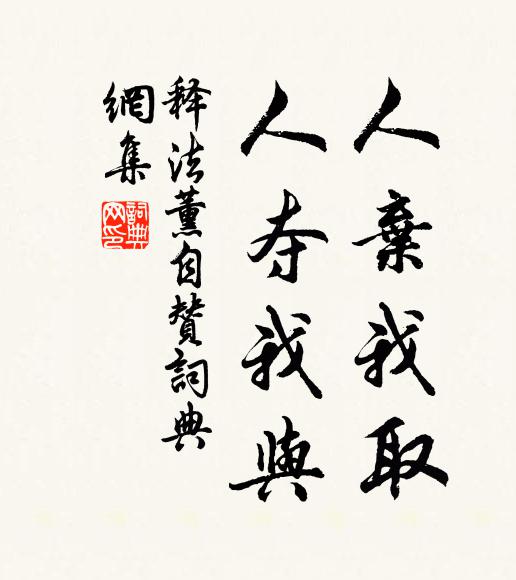 人棄我取
人夺我與
释法薰自赞詞典
網集
詞典
网印